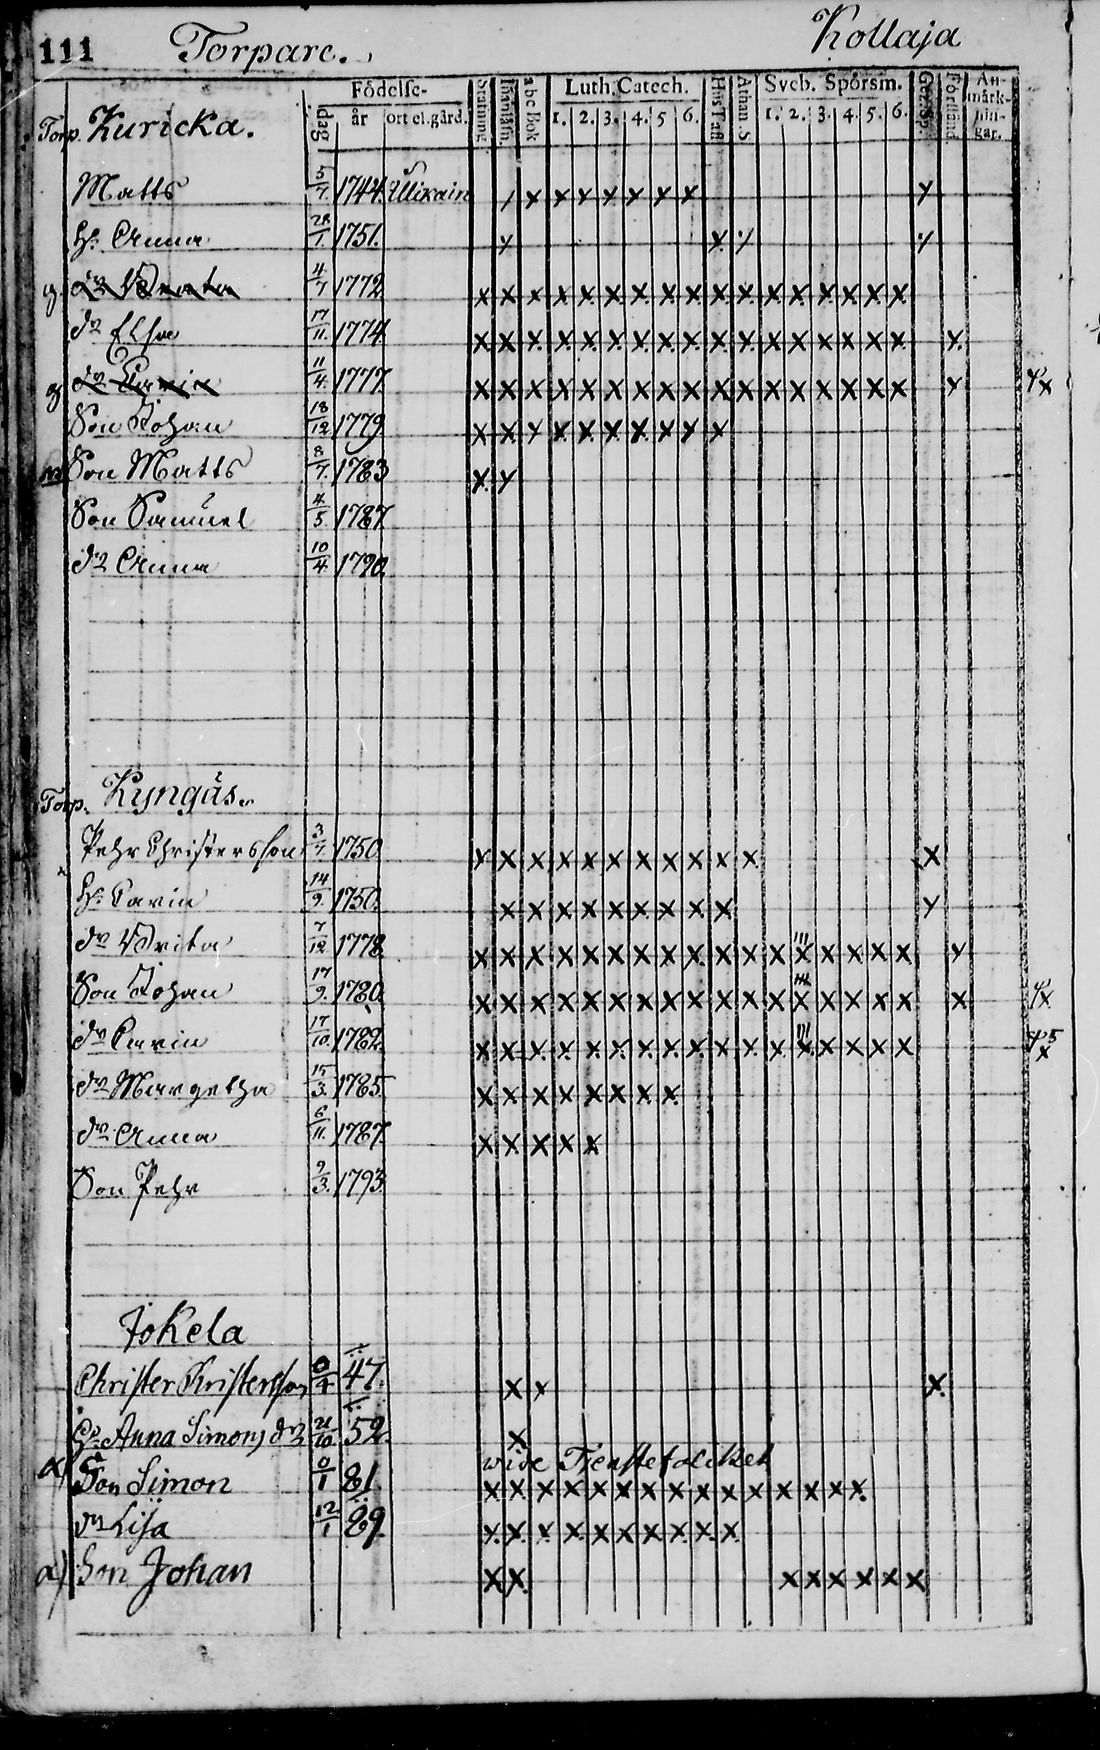 111 Torpare. Kollaja
Födelse- dag år ort el. gård. Stafning Innanläsn. abc Bok Luth. Catech. 1. 2. 3. 4. 5 6. Hus Tafl. Athan. S. Sveb. Spörsm. 1. 2. 3. 4. 5. 6. An- märk- nin- gar.
Torp. Kuricka.
Matts 5/7. 1744. / x x x x x x x y
H: Anna 28/1. 1751. y x y y
g dr Beata 4/7 1772 x x x x x x x x x x x x x x x x
dr Elsa 17/11. 1774. x x x x x x x x x x x x x x x x x
g dr Carin 11/4. 1777. x x x x x x x x x x x x x x x x x
Son Johan 18/12 1779 x x x x x x x x x x
Son Matts 8/7. 1783 x y
Son Samuel 4/5. 1787.
dr Anna 10/4 1790.
Torp. Kyngäs.
Pehr Christersson 3/7. 1750 x x x x x x x x x x x x
H: Carin 14/9. 1750. x x x x x x x x x y
dr Brita 7/12 1778 x x x x x x x x x x x x x x x x x
Son Johan 17/9. 1780. x x x x x x x x x x x x x x x x x
dr Carin 17/10. 1782. x x x x x x x x x x x x x x x x
dr Margetha 15/3. 1785. x x x x x x x x
dr Anna 6/11. 1787. x x x x x
Son Pehr 9/3. 1793.
Jokela
Christer Kristersson 0/4 47. x x x
H: Anna Simons dr 21/10. 52. x
vide Tjenstefolcket
α) Son Simon 0/1 81. x x x x x x x x x x x x x x x
dr Lisa 12/1 89. x x x x x x x x x x
α) Son Johan x x x x x x x x